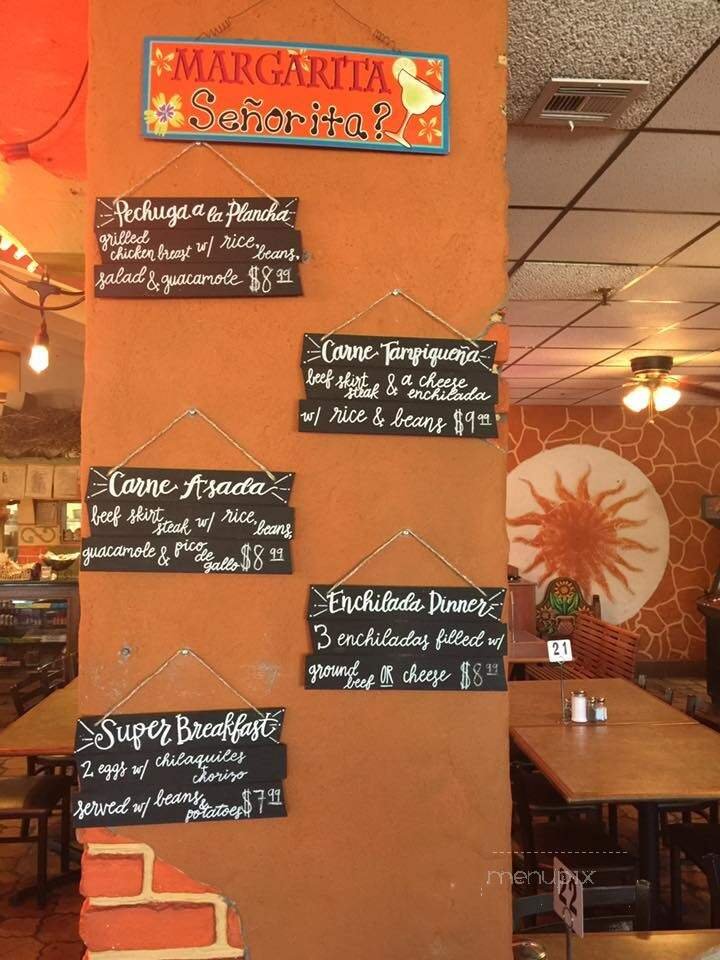 MARGARITA
Señorita?
Pechuga a la Plancha
grilled chicken breast w/ rice, beans,
salad & guacamole $8.99
Carne Tampiqueña
beef skirt steak & a cheese enchilada
w/ rice & beans $9.99
Carne Asada
beef skirt steak w/ rice, beans,
guacamole & pico de gallo $8.99
Enchilada Dinner
3 enchiladas filled w/
ground beef OR cheese $8.99
Super Breakfast
2 eggs w/ chilaquiles chorizo
served w/ beans & potatoes $7.99
21
menupix
22